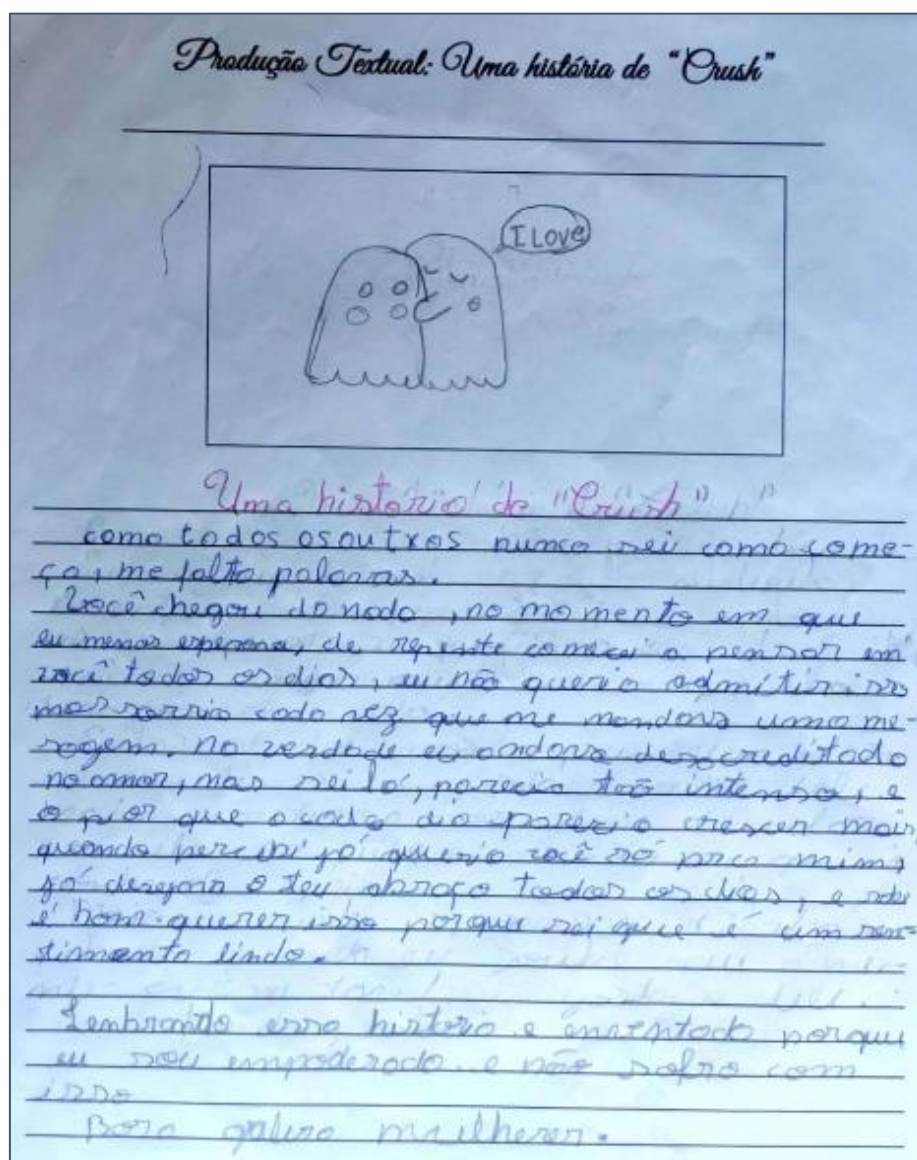 Produção Textual: Uma história de "Crush"
I Love
Uma história de "Crush"
como todos osoutros nunca sei como come-
ço, me falta palavras.
Você chegou do nada, no momento em que
eu menos esperava, de repente comecei a pensar em
você todos os dias, eu não queria admitir isso
mas sorria cada vez que me mandava uma me-
sagem. na verdade eu andava desacreditada
no amor, mas sei lá, parecia tão intenso, e
o pior que a cada dia parecia crescer mais,
quando percebi já queria você só pra mim,
já desejava o teu abraço todos os dias, e
é bom querer isso porque sei que é um sen-
timento lindo.
Lembrando essa história e inventada porque
eu sou empoderada e não sofro com
isso
Bora galera mulheres.